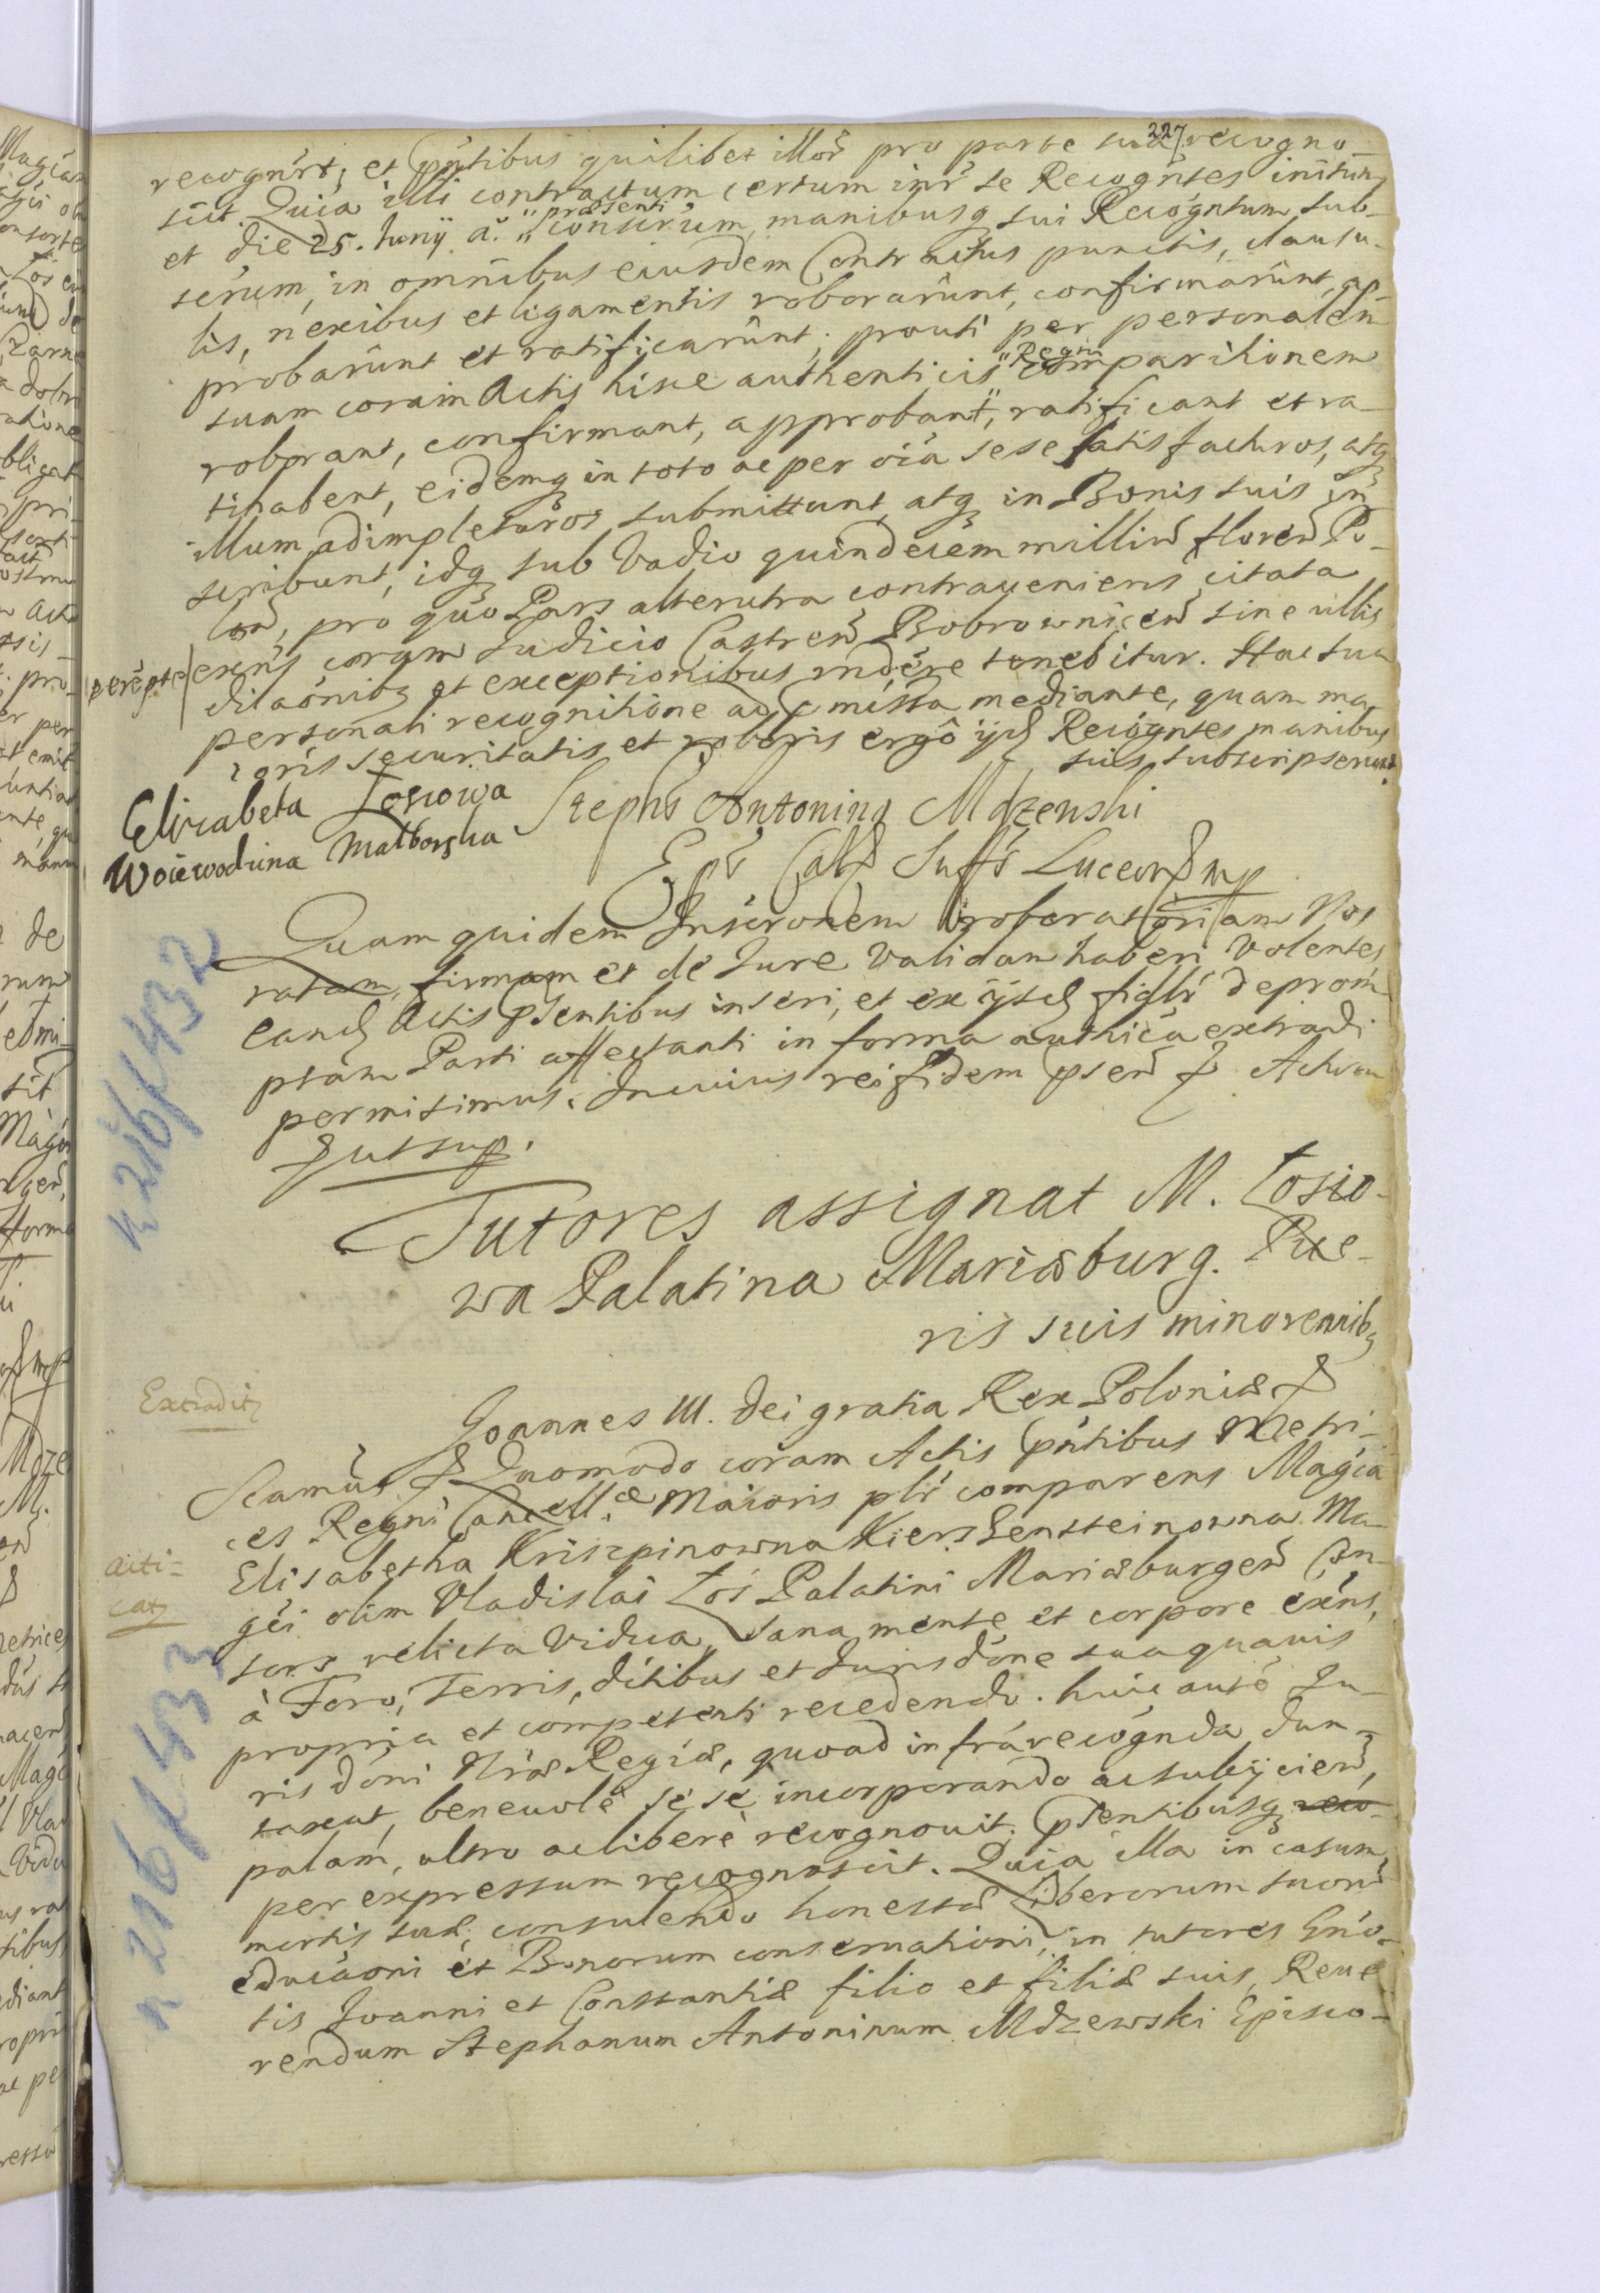 227
recognrt, et pntibus quilibet illor pro parte sua recogno
scit. Quia illi contractum certum intr se Recogntes initum
et die 25. Iunÿ a. praesenti conscrium, manibusq sui Recogntum sub-
scrium, in omnibus eiusdem Contractus punctis, clausu-
lis, nexibus et ligamentis roborarunt, confirmarunt, ap-
probarunt et ratificarunt; prouti per personalem
suam coram Actis hisce authenticis Regni comparitionem
roborant, confirmant, approbant, ratificant et ra-
tihabent, eidemq in toto ac per oia sese satisfacturos, atq
illum adimpleturos submittunt, atq in Bonis suis in
scribunt, idq sub Vadio quindecem milliu floren Po-
lon, pro quo Pars alterutra contraueniens citata
perepte exns coram Iudicio Castren Bobrownicen sine ullis
dilaonibq et exceptionibus rndere tenebitur. Hac sua
personali recognitione ad missa mediante, quam ma
ioris securitatis et roboris ergo ijd Recogntes manibus
suis subscripserunt.
Elizabeta Łosiowa
Woiewodzina Malborska
Stephs Antoninq Mdzewski
Eps Call Suffs Luceor mp
Quam quidem Inscronem roboratoriam Nos
ratam, firmam et de Iure validam haberi volentes
eand Actis psentibus inseri, et ex ijsd figlr deprom
ptam Parti affectanti in forma authica extradi
permisimus. In cuius rei fidem psen Actum
ut sup.
Tutores assignat M. Łosio-
wa Palatina Mariæburg. Pue-
ris suis minorennibq
Extraditq
Joannes III. Dei gratia Rex Poloniæ
Quomodo coram Actis pntibus Metri-
ces Regni Cancellæ Maioris plr comparens Magca
Elisabetha Kriszpinowna Kierszensteinowna Ma-
acti-
catq
gci olim Vladislai Łos Palatini Mariæburgen Con-
sors relicta Vidua, sana mente et corpore exns,
à Foro, Terris, ditibus et Iurisdone sua quauis
propria et competenti recedendo. huic aute Iu-
risdoni Nræ Regiæ, quoad infra recognda dun-
taxat, beneuole sese incorporando ac subijcien,
palam, ultro ac liberè recognouit. psentibusq reco-
per expressum recognoscit. Quia illa in casum
mortis suæ, consulendo honestæ Liberorum suor
educaoni et Bonorum conseruationi, in tutores Gno-
tis Joanni et Constantiæ filio et filiæ suis, Reue
rendum Stephanum Antoninum Mdzewski Episco-
k 216/432
k 216/433